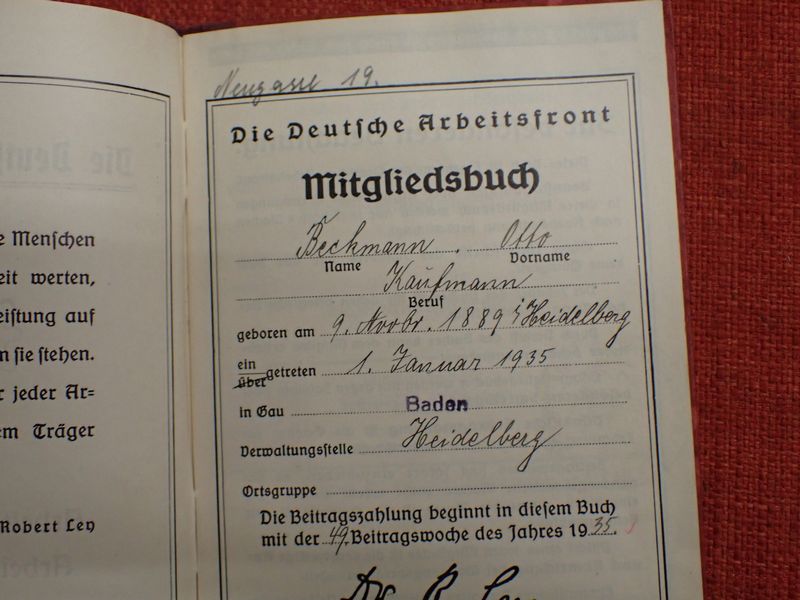 e Menschen
eit werten,
eistung auf
n sie stehen.
r jeder Ar=
em Träger
Robert Ley
Neugasse 19.
Die Deutsche Arbeitsfront
Mitgliedsbuch
Beckmann, Otto
Name Vorname
Kaufmann
Beruf
geboren am 9. Novbr. 1889 i/Heidelberg
ein
übergetreten 1. Januar 1935
in Gau Baden
Verwaltungsstelle Heidelberg
Ortsgruppe
Die Beitragszahlung beginnt in diesem Buch
mit der 49. Beitragswoche des Jahres 1935.
Dr. R. Ley